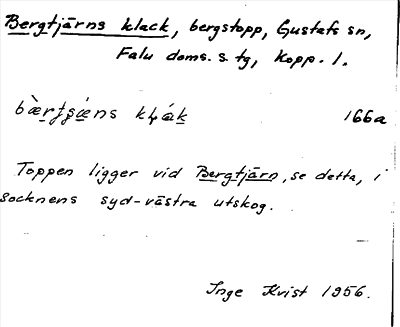 Bergtjärns klack, bergstopp, Gustafs sn,
Falu doms. s tg, Kopp. l.
166a
Toppen ligger vid Bergtjärn, se detta, i
socknens syd-västra utskog.
Inge Kvist 1956.